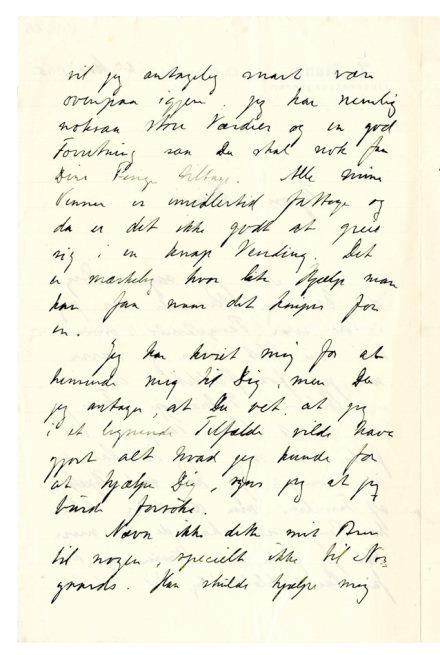 vil jeg antagelig snart være
ovenpaa igjen. Jeg har nemlig
noksaa store Værdier og en god
Forretning saa Du skal nok faa
Dine Penge tilbage. Alle mine
Venner er imidlertid fattige og
da er det ikke godt at greie
sig i en knap Vending. Det
er mærkelig hvor lite Hjælp man
kan faa naar det kniper for
en.
Jeg har kviet mig for at
henvende mig til Dig, men da
jeg antager, at Du vet, at jeg
i et lignende Tilfælde vilde have
gjort alt hvad jeg kunde for
at hjælpe Dig, synes jeg at jeg
burde forsøke.
Nævn ikke dette mit Brev
til nogen, specielt ikke til Nor-
gaards. Kan skulde hjælpe mig